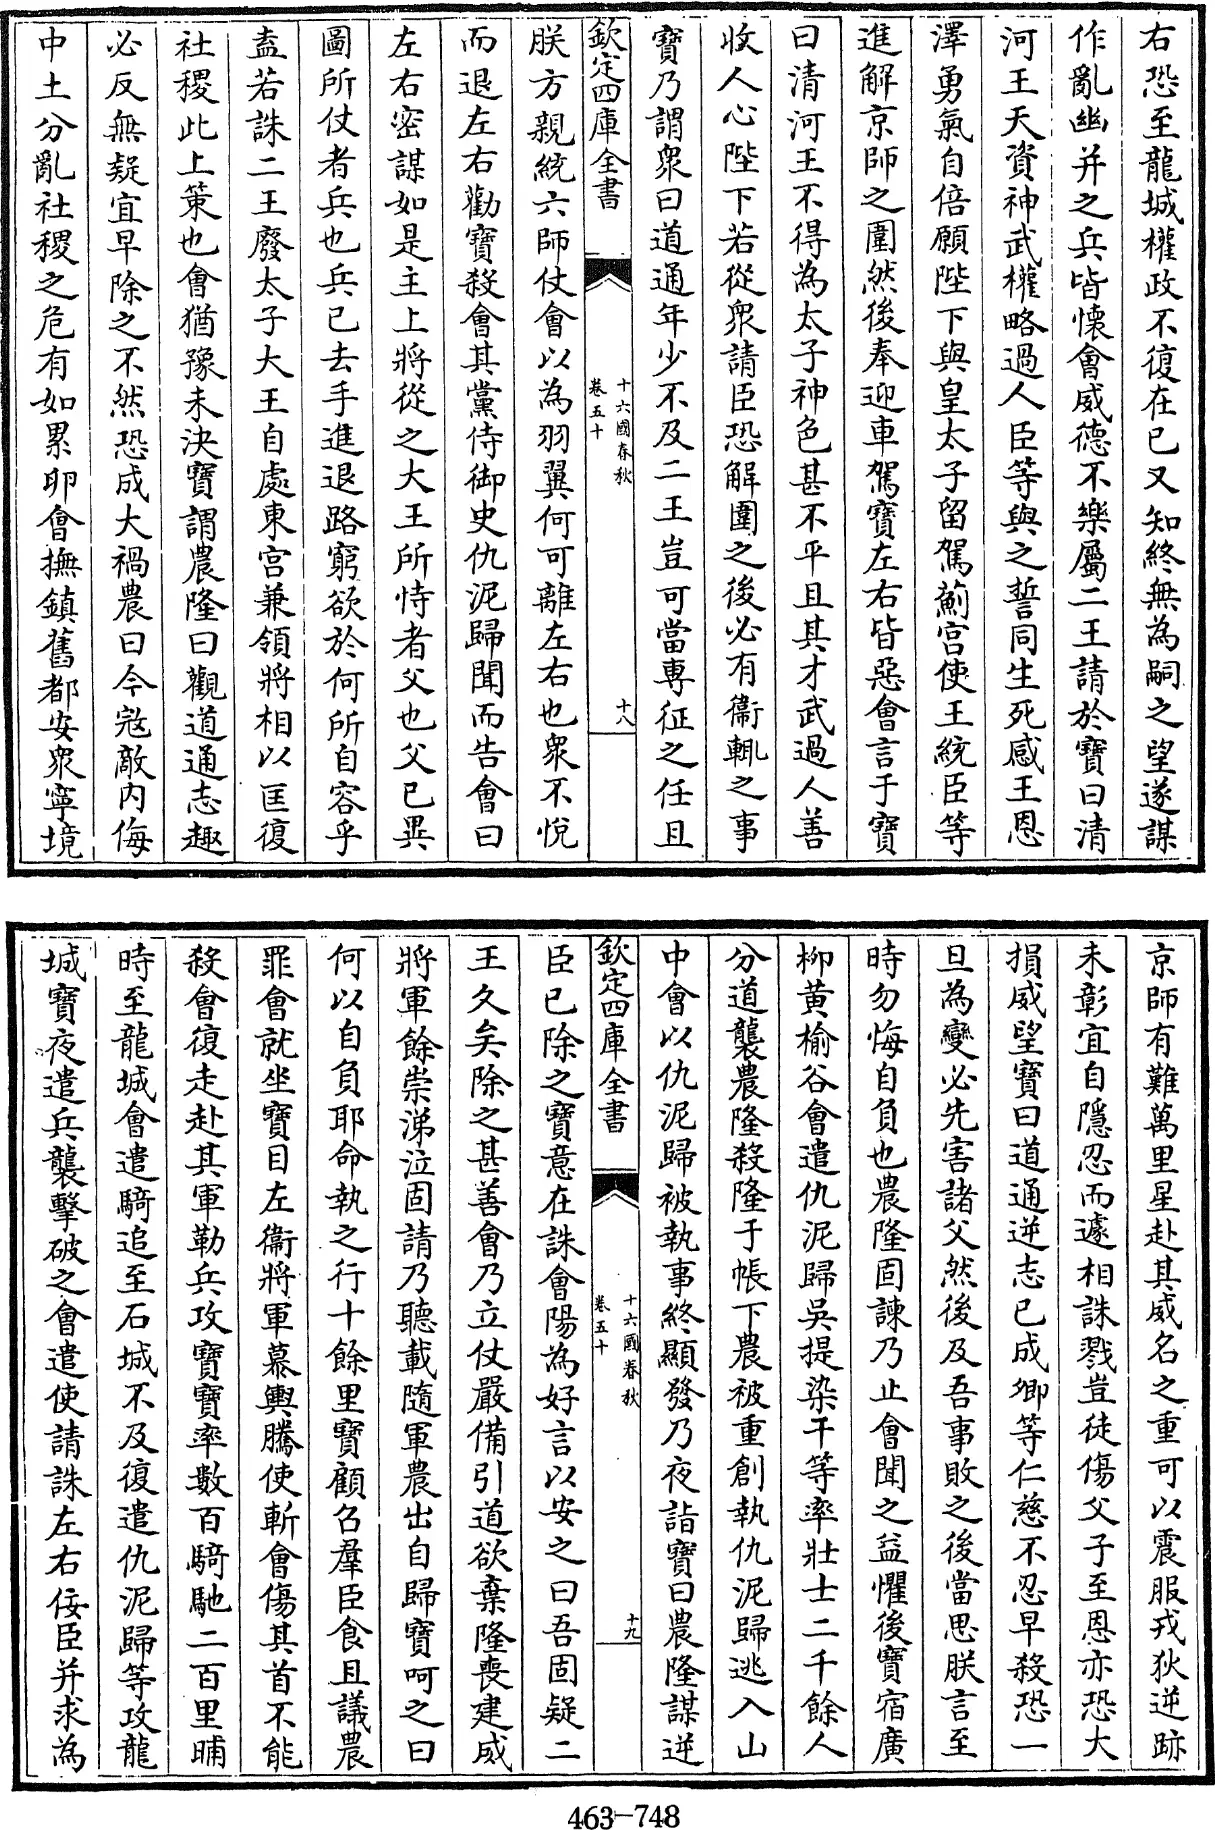 右恐至龍城權政不復在已又知終無為嗣之望遂謀
作亂幽并之兵皆懷會威德不樂屬二王請於寶曰清
河王天資神武權略過人臣等與之誓同生死感王恩
澤勇氣自倍願陛下與皇太子留駕薊宫使王統臣等
進解京師之圍然後奉迎車駕寶左右皆惡會言于寶
曰清河王不得為太子神色甚不平且其才武過人善
收人心陛下若從衆請臣恐解圍之後必有衞輒之事
寶乃謂衆曰道通年少不及二王豈可當專征之任且
欽定四庫全書
十六國春秋
卷五十
十八
朕方親統六師仗會以為羽翼何可離左右也衆不悦
而退左右勸寶殺會其黨侍御史仇泥歸聞而告會曰
左右密謀如是主上將從之大王所恃者父也父已異
圖所仗者兵也兵已去手進退路窮欲於何所自容乎
盍若誅二王廢太子大王自處東宫兼領將相以匡復
社稷此上策也會猶豫未決寶謂農隆曰觀道通志趣
必反無疑宜早除之不然恐成大禍農曰今宼敵内侮
中土分亂社稷之危有如累卵會撫鎮舊都安衆寧境
京師有難萬里星赴其威名之重可以震服戎狄逆跡
未彰宜自隱忍而遽相誅戮豈徒傷父子至恩亦恐大
損威望寶曰道通逆志已成卿等仁慈不忍早殺恐一
旦為變必先害諸父然後及吾事敗之後當思朕言至
時勿悔自負也農隆固諫乃止會聞之益懼後寶宿廣
栁黄榆谷會遣仇泥歸吳提染干等率壯士二千餘人
分道襲農隆殺隆于帳下農被重創執仇泥歸逃入山
中會以仇泥歸被執事終顯發乃夜詣寶曰農隆謀逆
欽定四庫全書
十六國春秋
卷五十
十九
臣已除之寶意在誅會陽為好言以安之曰吾固疑二
王久矣除之甚善會乃立仗嚴備引道欲棄隆喪建威
將軍餘崇涕泣固請乃聽載隨軍農出自歸寶呵之曰
何以自負耶命執之行十餘里寶顧召羣臣食且議農
罪會就坐寶目左衞將軍慕輿騰使斬會傷其首不能
殺會復走赴其軍勒兵攻寶寶率數百騎馳二百里晡
時至龍城會遣騎追至石城不及復遣仇泥歸等攻龍
城寶夜遣兵襲擊破之會遣使請誅左右佞臣并求為
463-748